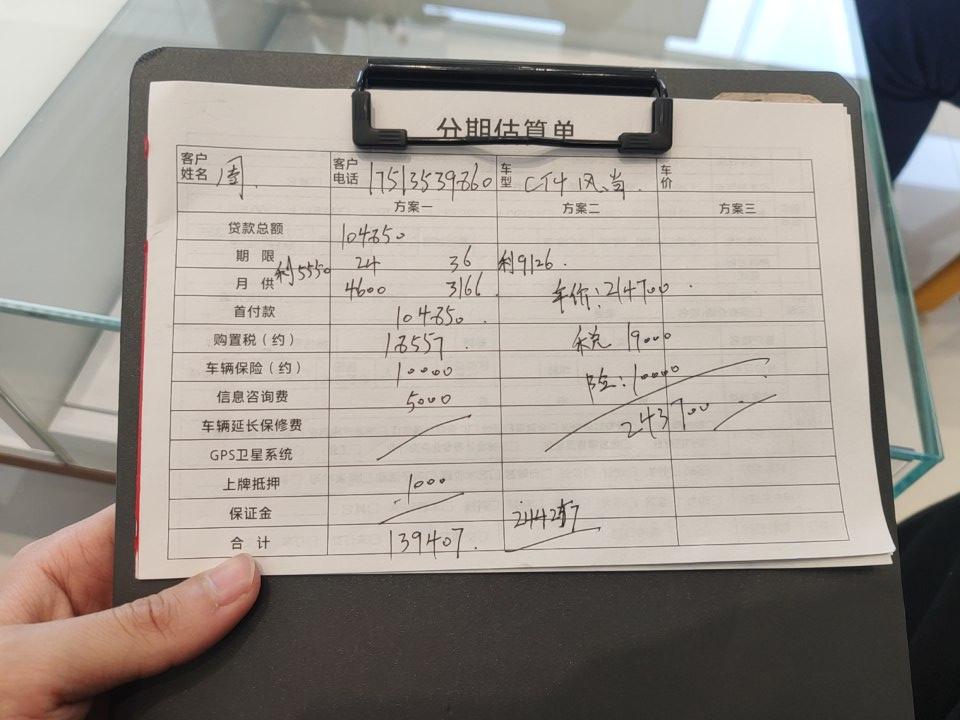 分期估算单
客户姓名 周. 客户电话 17513539860 车型 CT4 风尚. 车价
方案一 方案二 方案三
贷款总额 104850
期限 24 36 利9126.
月供 利5550 4600 3166. 车价:214700
首付款 104850.
购置税（约） 18557 税 19000
车辆保险（约） 10000 险:10000
信息咨询费 5000
车辆延长保修费 243700
GPS卫星系统
上牌抵押 1000
保证金
合计 139407.